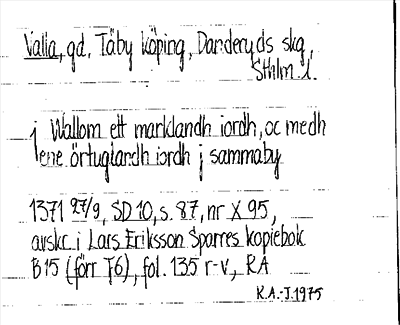 Valla, gd, Täby köping, Danderyds skg,
Sthlm l.
j Wallom ett marklandh iordh, oc medh
ene örtuglandh iordh j sammaby
1371 27/9, SD 10, s. 87, nr X 95,
avskr i Lars Eriksson Sparres kopiebok
B15 (förr T6), fol. 135 r-v, RA
K.A.-J. 1975